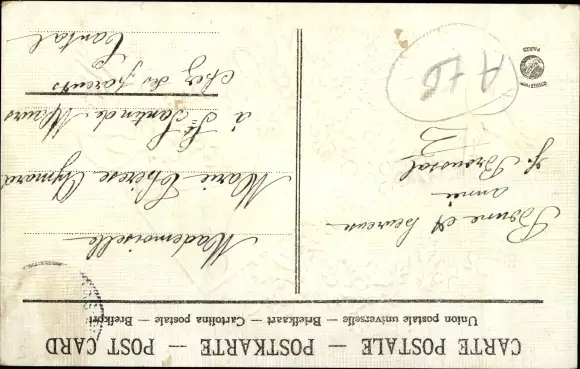 CARTE POSTALE — POSTKARTE — POST CARD
Union postale universelle — Briefkaart — Cartolina postale — Brefkort
Bonne et heureuse
année
J. Broustal
Mademoiselle
Marie Thérèse Aymard
à St Santin de Maurs
chez ses parents
Cantal
PARIS